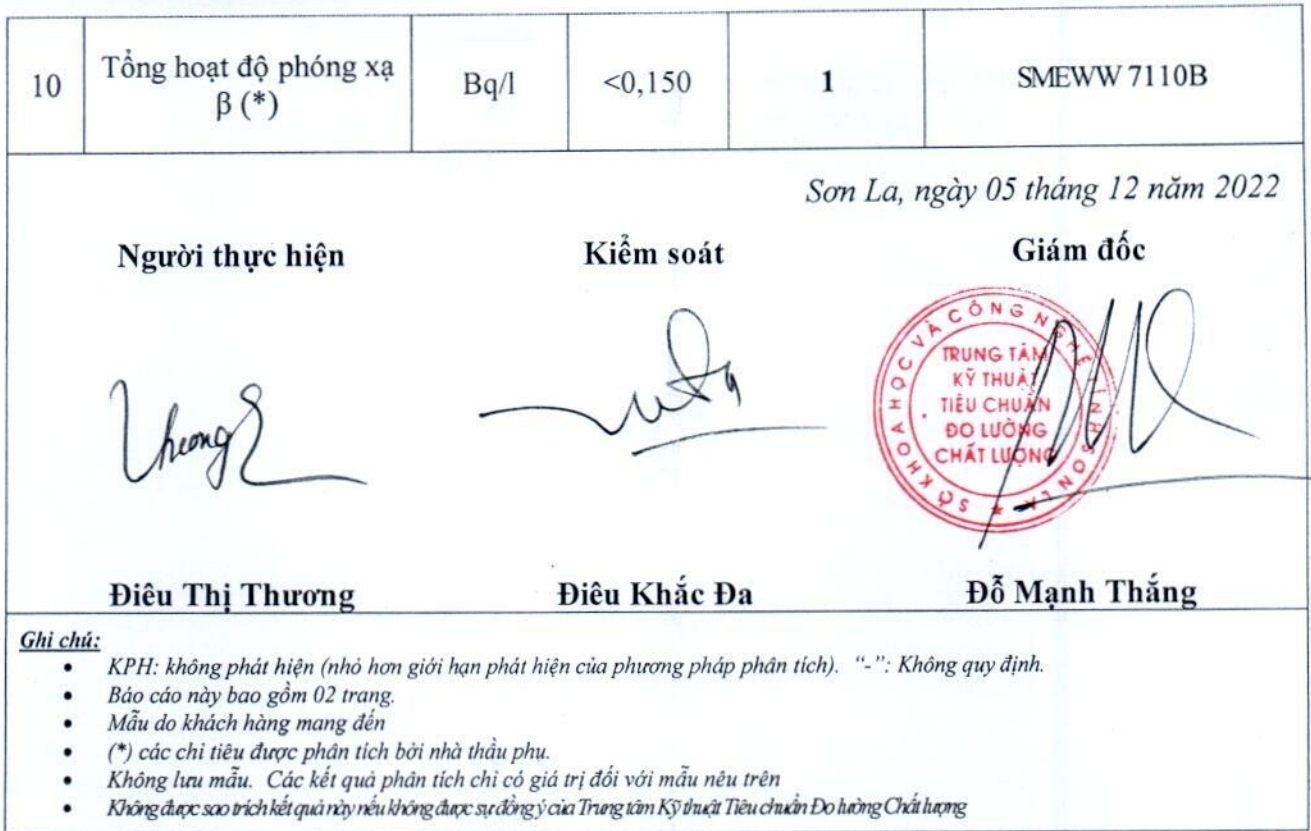 10 Tổng hoạt độ phóng xạ β (*) Bq/l <0,150 1 SMEWW 7110B
Sơn La, ngày 05 tháng 12 năm 2022
Người thực hiện Kiểm soát Giám đốc
SỞ KHOA HỌC VÀ CÔNG NGHỆ TỈNH SƠN LA
TRUNG TÂM
KỸ THUẬT
TIÊU CHUẨN
ĐO LƯỜNG
CHẤT LƯỢNG
Điêu Thị Thương Điêu Khắc Đa Đỗ Mạnh Thắng
Ghi chú:
• KPH: không phát hiện (nhỏ hơn giới hạn phát hiện của phương pháp phân tích). “-”: Không quy định.
• Báo cáo này bao gồm 02 trang.
• Mẫu do khách hàng mang đến
• (*) các chỉ tiêu được phân tích bởi nhà thầu phụ.
• Không lưu mẫu. Các kết quả phân tích chỉ có giá trị đối với mẫu nêu trên
• Không được sao trích kết quả này nếu không được sự đồng ý của Trung tâm Kỹ thuật Tiêu chuẩn Đo lường Chất lượng